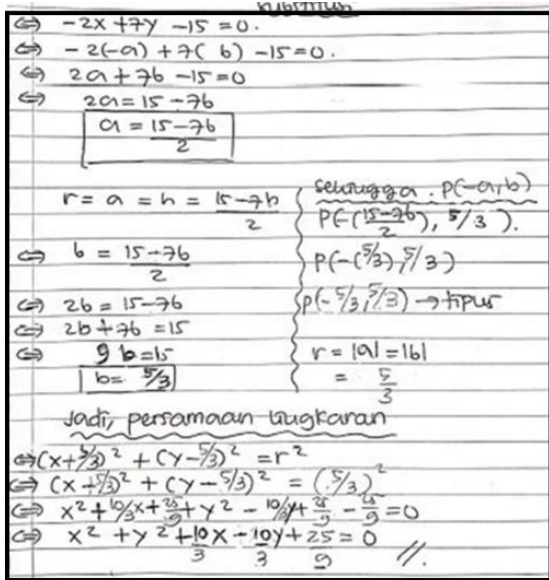 ⇔ -2x +7y -15 = 0.
⇔ -2(-a) + 7( b) -15=0.
⇔ 2a + 7b -15=0
⇔ 2a = 15 -7b
a = 15-7b / 2
r = a = h = 15-7b / 2
⇔ b = 15-7b / 2
⇔ 2b = 15-7b
⇔ 2b +7b =15
⇔ 9b=15
b= 5/3
sehingga . P(-a,b)
P(-(15-7b / 2), 5/3).
P(-(5/3),5/3)
P(-5/3,5/3) → tipus
r = |a| = |b|
= 5/3
Jadi, persamaan lingkaran
⇔ (x+5/3)² + (y-5/3)² = r²
⇔ (x+5/3)² + (y-5/3)² = (5/3)²
⇔ x² + 10/3x + 25/9 + y² - 10/3y + 25/9 - 25/9 = 0
⇔ x² + y² + 10/3 x - 10/3 y + 25/9 = 0 //.